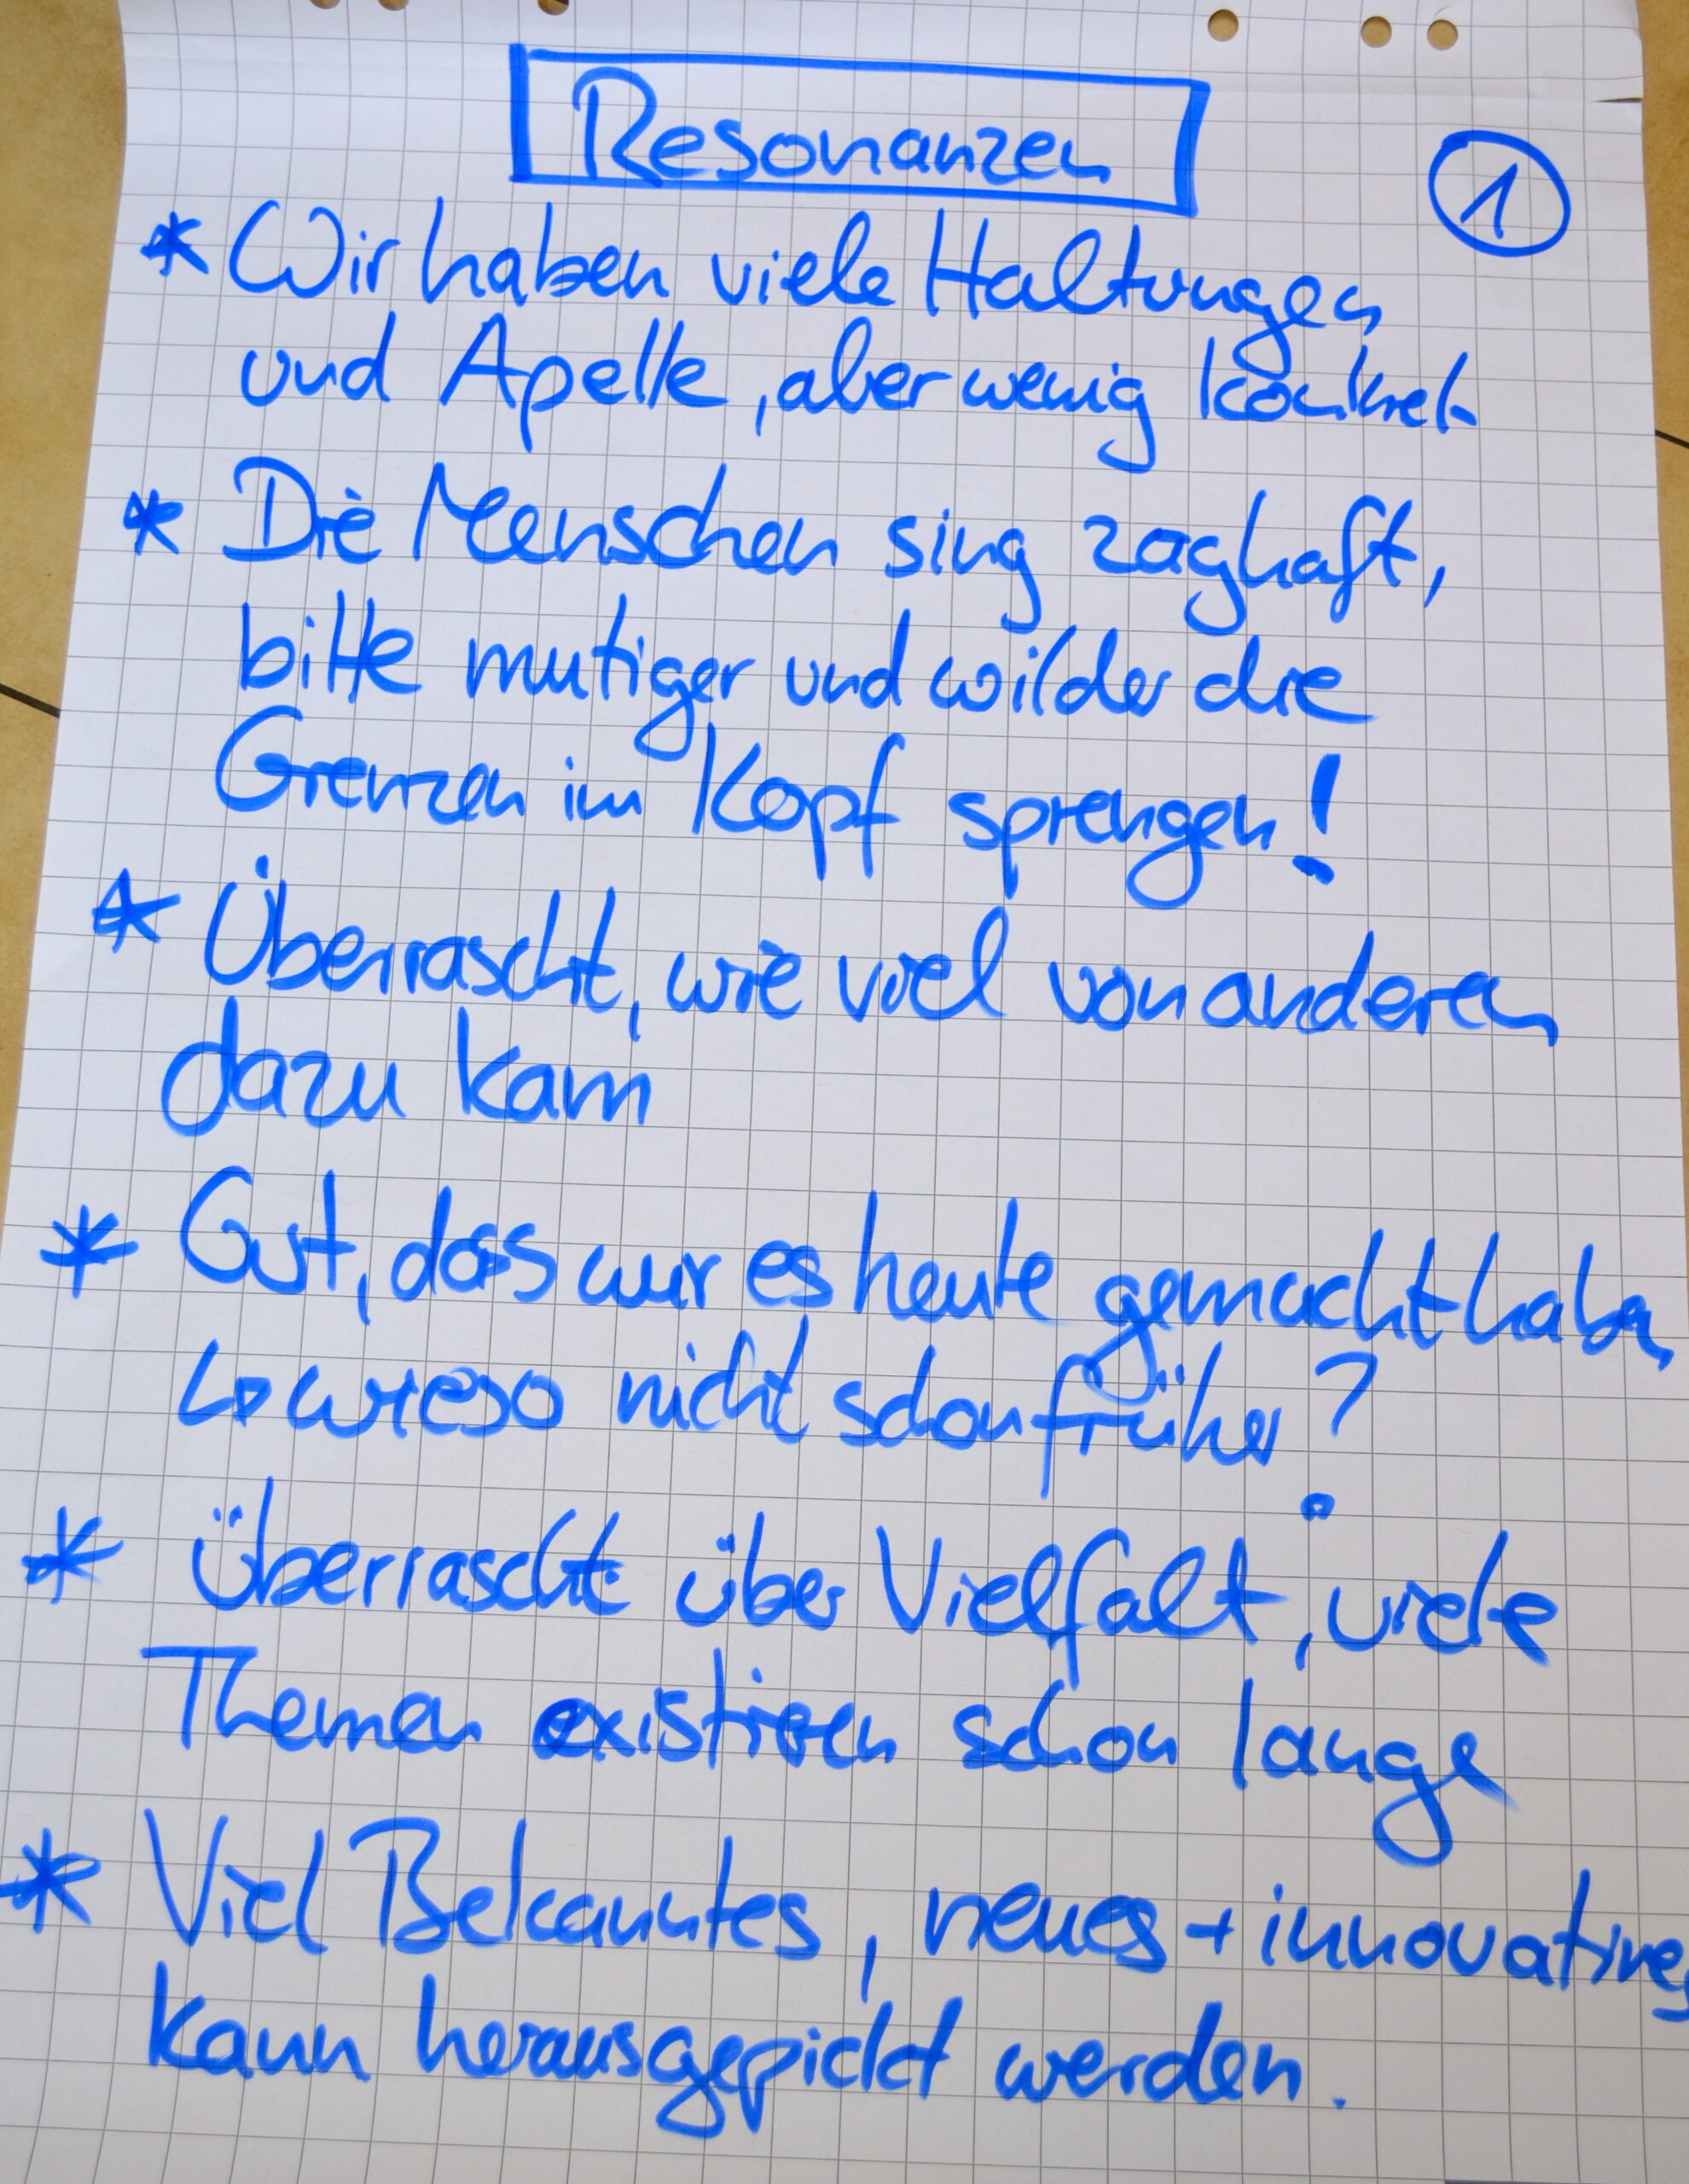 Resonanzen
1
* Wir haben viele Haltungen
und Apelle, aber wenig konkret
* Die Menschen sing zaghaft,
bitte mutiger und wilder die
Grenzen im Kopf sprengen!
* Überrascht, wie viel von anderen
dazu kam
* Gut, dass wir es heute gemacht haben
↳ wieso nicht schon früher?
* Überrascht über Vielfalt, viele
Themen existieren schon lange
* Viel Bekanntes, neues + innovatives
kann herausgepickt werden.